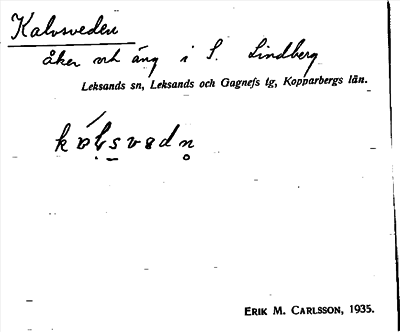 Kalvsveden
åker och äng i S. Lindberg
Leksands sn, Leksands och Gagnefs tg, Kopparbergs län.
kálsvedn
ERIK M. CARLSSON, 1935.